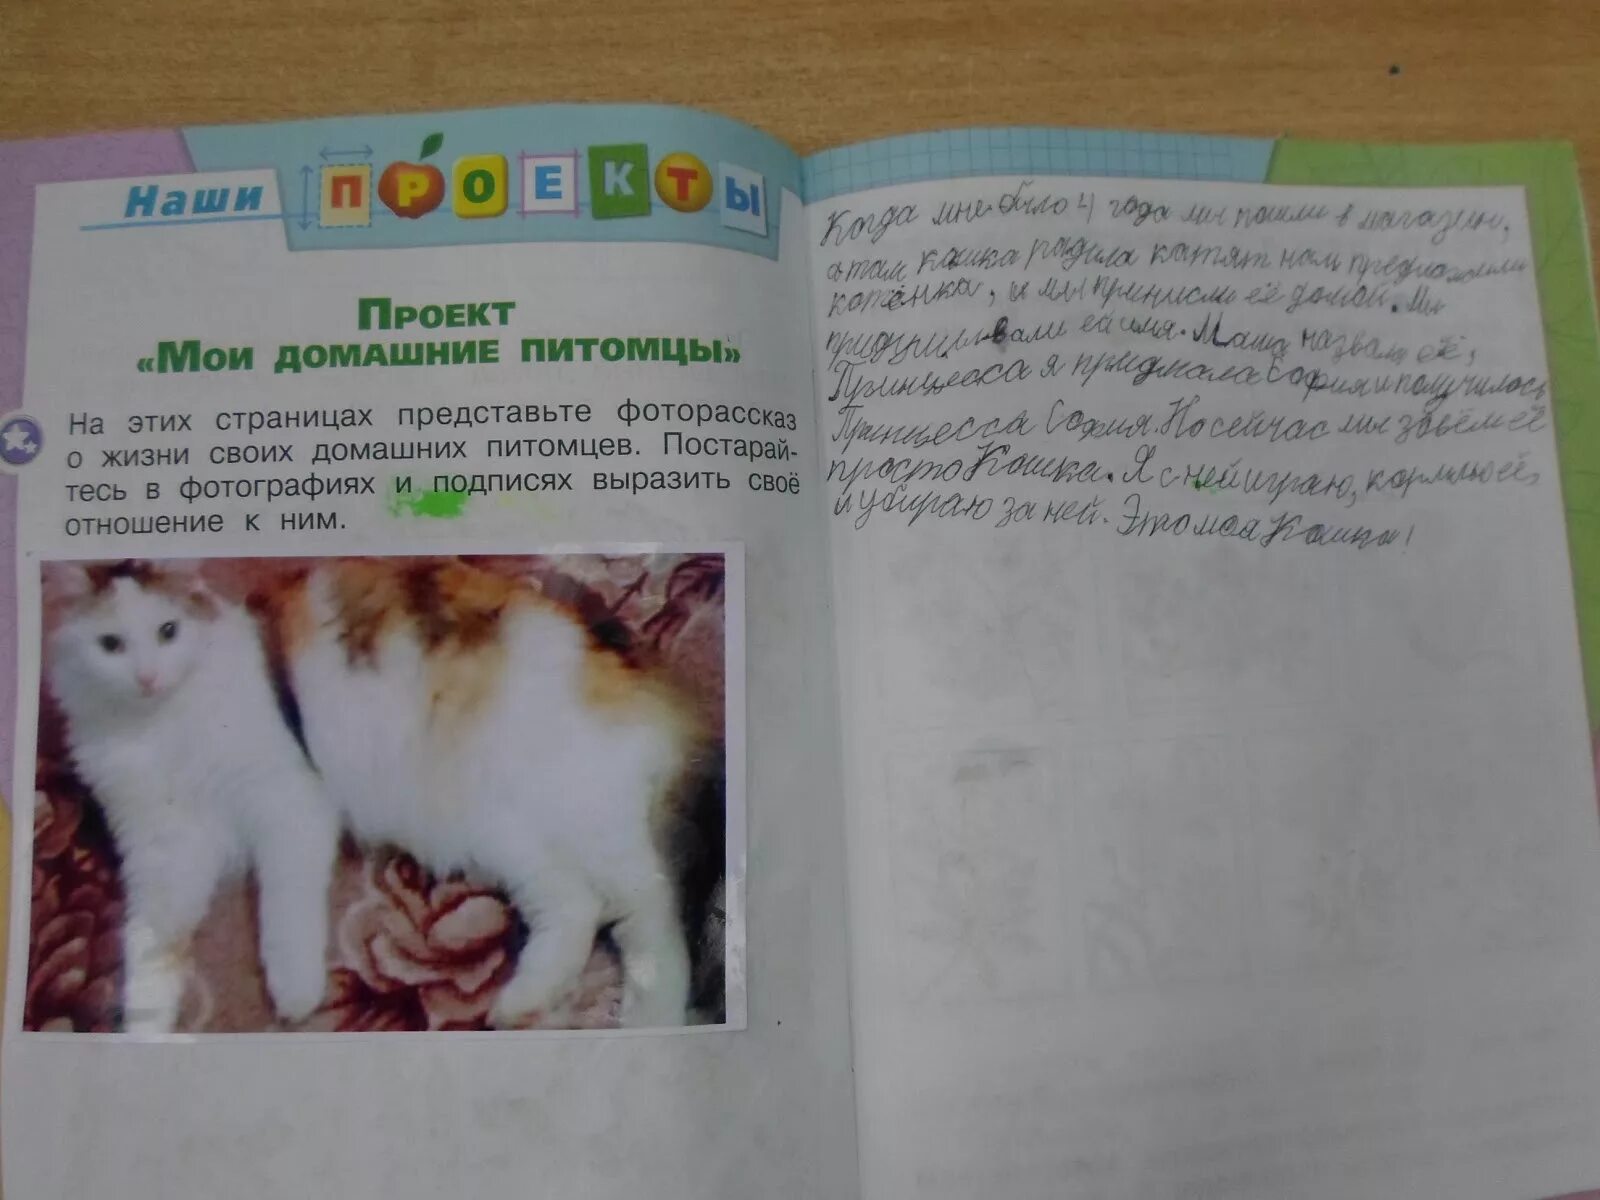 Наши ПРОЕКТЫ
ПРОЕКТ
«МОИ ДОМАШНИЕ ПИТОМЦЫ»
На этих страницах представьте фоторассказ
о жизни своих домашних питомцев. Постарай-
тесь в фотографиях и подписях выразить своё
отношение к ним.
Когда мне было 4 года мы пошли в магазин,
а там кошка радила катят нам предложили
котёнка, и мы принисли её домой. Мы
придумывали ей имя. Маша назвала её,
Принцесса я придмала София и получилось
Принцесса София. Но сейчас мы завём её
просто Кошка. Я с ней играю, кормлю её,
и убираю за ней. Это моя Кошка!